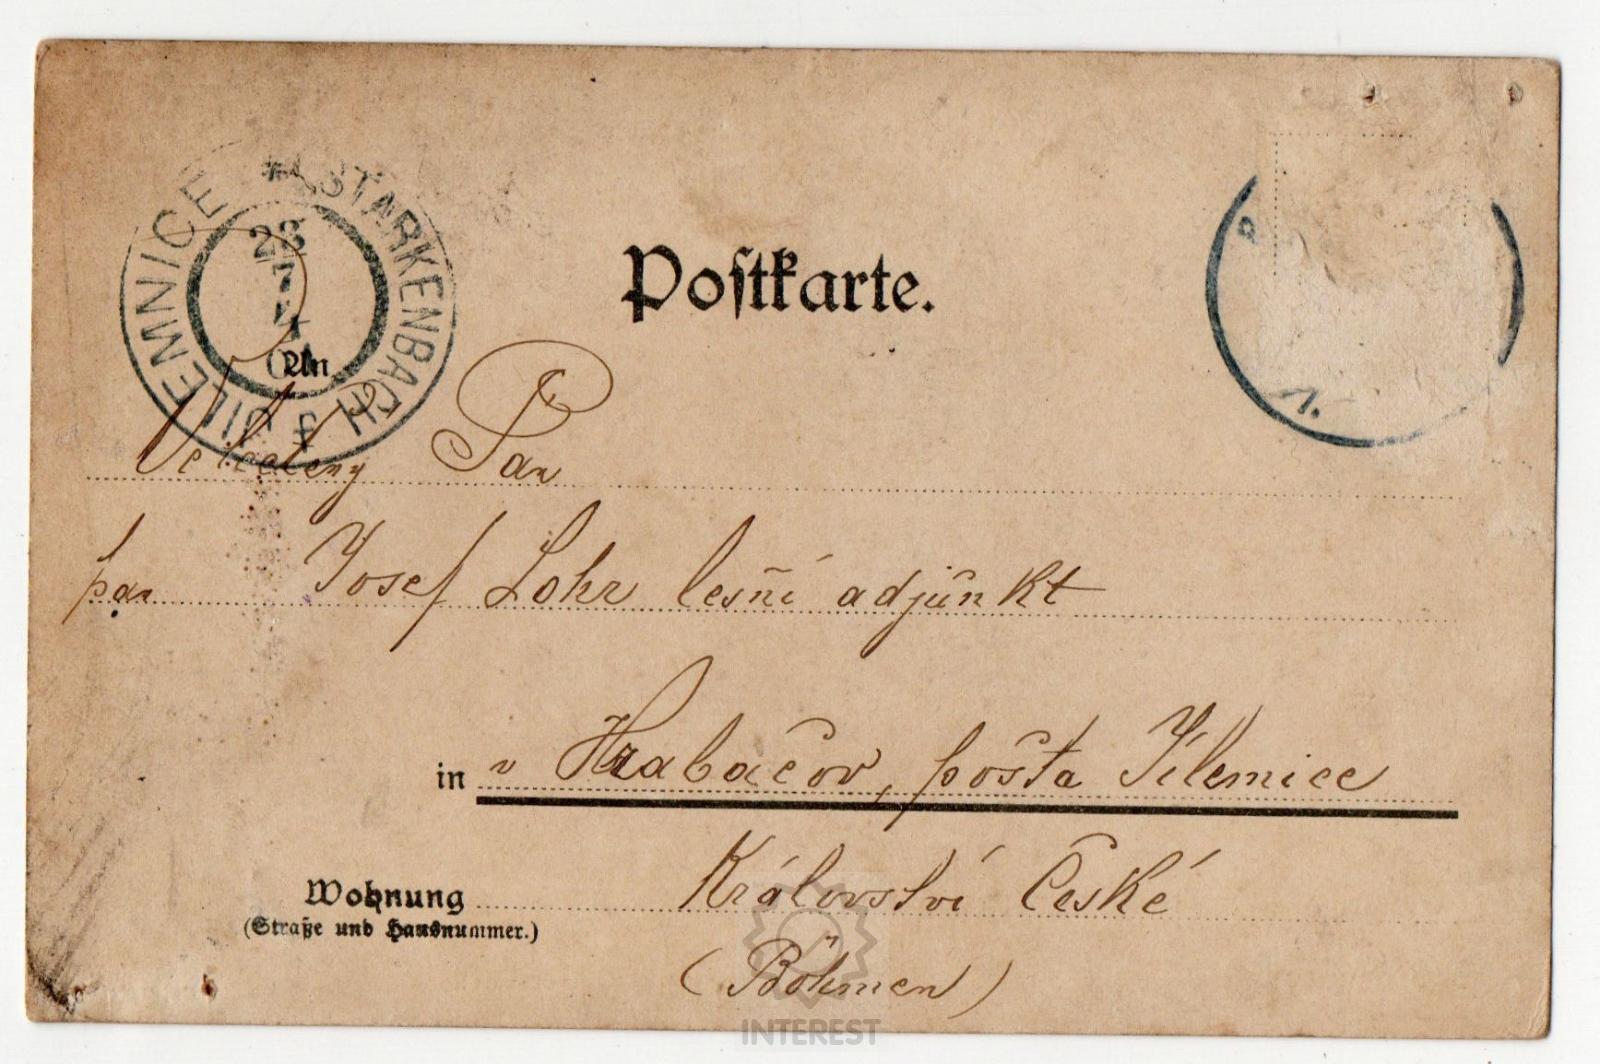 STARKENBACH JILEMNICE
23
7
Postkarte.
An
Velectěny Pan
pan Josef Lohr lesni adjunkt
in v Hrabačov, pošta Jilemnice
Království České
Wohnung
(Straße und Hausnummer.)
(Böhmen)
INTEREST